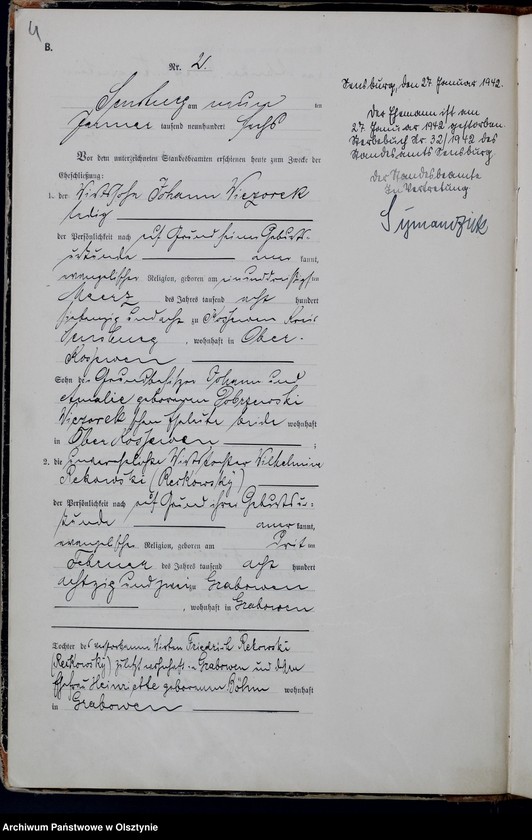 4
B.
Nr. 2.
Sensburg am neun ten
Januar tausend neunhundert sechs
Vor dem unterzeichneten Standesbeamten erschienen heute zum Zwecke der
Eheschließung:
1. der Wirtssohn Johann Wiezorek
ledig
der Persönlichkeit nach auf Grund seiner Geburts-
urkunde aner kannt,
evangelischer Religion, geboren am einunddreißigsten
Maerz des Jahres tausend acht hundert
siebenzig und acht zu Koszewen Kreis
Sensburg, wohnhaft in Ober-
Koszewen
Sohn des Grundbesitzer Johann und
Amalie geborenen
Wiezorek'schen Eheleute beide wohnhaft
in Ober Koszewen ;
2. die Wirtstochter Wilhelmine
Rekowski (Reckowsky)
der Persönlichkeit nach auf Grund ihrer Geburtsur-
kunde aner kannt,
evangelischer Religion, geboren am Dritten
Februar des Jahres tausend acht hundert
achtzig und zwei zu Grabowen
, wohnhaft in Grabowen
Tochter des verstorbenen Wirten Friedrich Rekowski
(Reckowsky) zuletzt wohnhaft in Grabowen und dessen
Ehefrau Henriette geborenen Böhm wohnhaft
in Grabowen
Sensburg, den 27. Januar 1942.
Der Ehemann ist am
27. Januar 1942 gestorben.
Sterbebuch Nr. 32/1942 des
Standesamts Sensburg.
Der Standesbeamte
In Vertretung
Symanzik
Archiwum Państwowe w Olsztynie